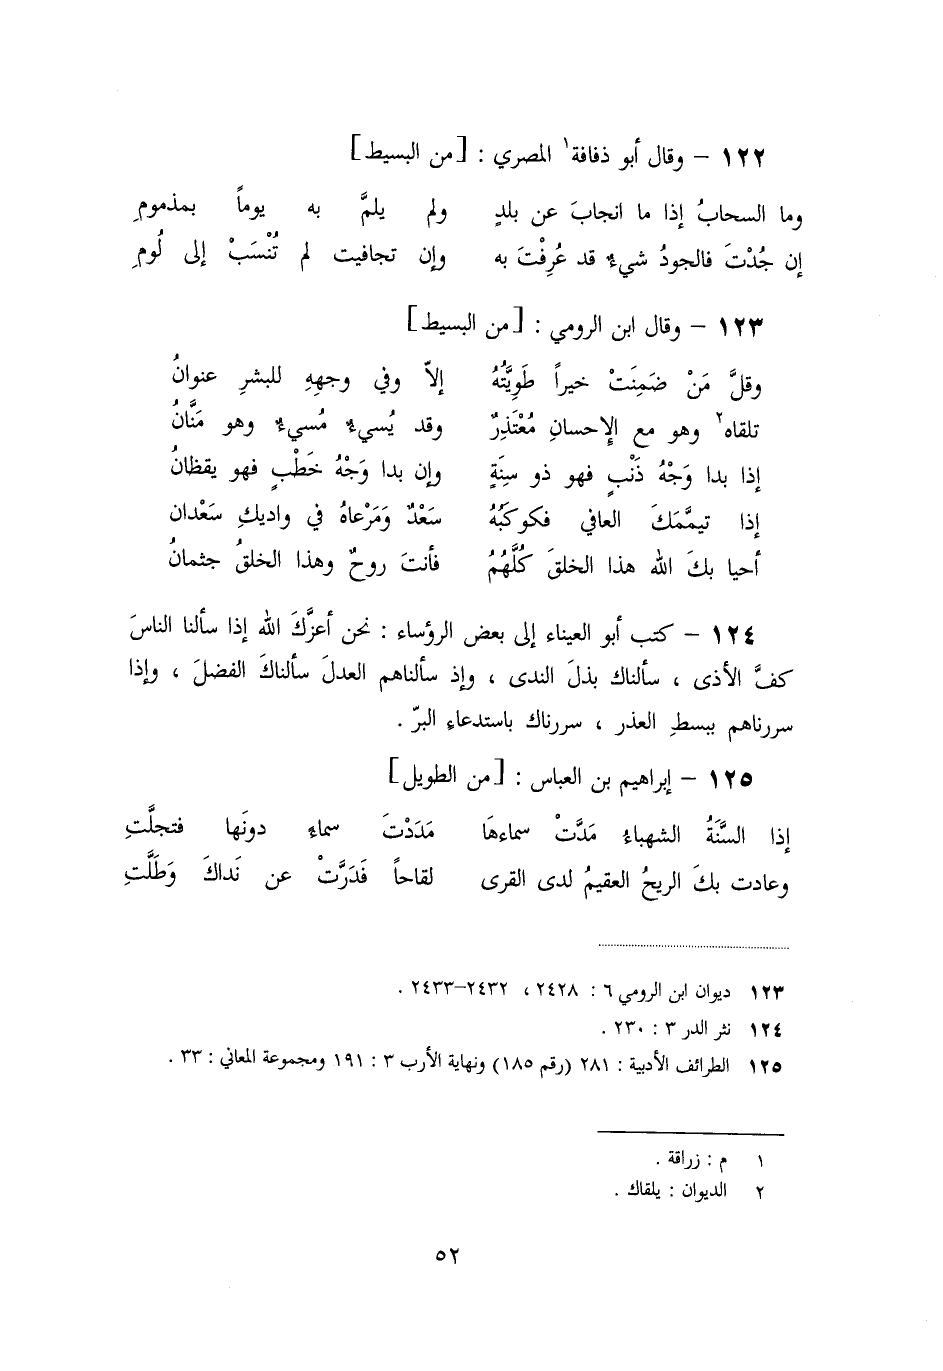 ١٢٢ – وقال أبو ذفافة١ المصري : [من البسيط]
وما السحابُ إذا ما انجابَ عن بلدٍ ولم يلمَّ به يوماً بمذمومِ
إن جُدْتَ فالجودُ شيءٌ قد عُرِفْتَ به وإن تجافيت لم تُنْسَبْ إلى لُومِ
١٢٣ – وقال ابن الرومي : [من البسيط]
وقلَّ مَنْ ضَمِنَتْ خيراً طَوِيَّتُهُ إلاّ وفي وجهِهِ للبشرِ عنوانُ
تلقاه٢ وهو مع الإحسانِ مُعْتَذِرٌ وقد يُسيءُ مُسيءٌ وهو مَنَّانُ
إذا بدا وَجْهُ ذَنْبٍ فهو ذو سِنَةٍ وإن بدا وَجْهُ خَطْبٍ فهو يقظانُ
إذا تيمَّمَكَ العافي فكوكبُهُ سَعْدٌ وَمَرْعاهُ في واديكِ سَعْدان
أحيا بكَ الله هذا الخلقَ كُلَّهُمُ فأنتَ روحٌ وهذا الخلقُ جثمانُ
١٢٤ – كتب أبو العيناء إلى بعض الرؤساء : نحن أعزَّكَ الله إذا سألنا الناسَ
كفَّ الأذى ، سألناك بذلَ الندى ، وإذ سألناهم العدلَ سألناكَ الفضلَ ، وإذا
سررناهم ببسطِ العذر ، سررناك باستدعاءِ البرّ .
١٢٥ – إبراهيم بن العباس : [من الطويل]
إذا السَّنَةُ الشهباءُ مَدَّتْ سماءهَا مَدَدْتَ سماءً دونَها فتجلَّتِ
وعادت بكَ الريحُ العقيمُ لدى القرى لقاحاً فَدَرَّتْ عن نَداكَ وَطَلَّتِ
١٢٣ ديوان ابن الرومي ٦ : ٢٤٢٨ ، ٢٤٣٢–٢٤٣٣ .
١٢٤ نثر الدر ٣ : ٢٣٠ .
١٢٥ الطرائف الأدبية : ٢٨١ (رقم ١٨٥) ونهاية الأرب ٣ : ١٩١ ومجموعة المعاني : ٣٣ .
١ م : زراقة .
٢ الديوان : يلقاك .
٥٢